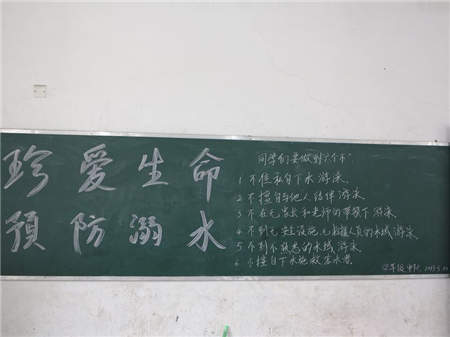 珍爱生命
预防溺水
同学们要做到"六个不"
1 不但私自下水游泳
2 不擅自与他人结伴游泳
3 不在无家长和老师的带领下游泳
4 不到无安全设施、无救援人员的水域游泳
5 不到不熟悉的水域游泳
6 不擅自下水施救
年级